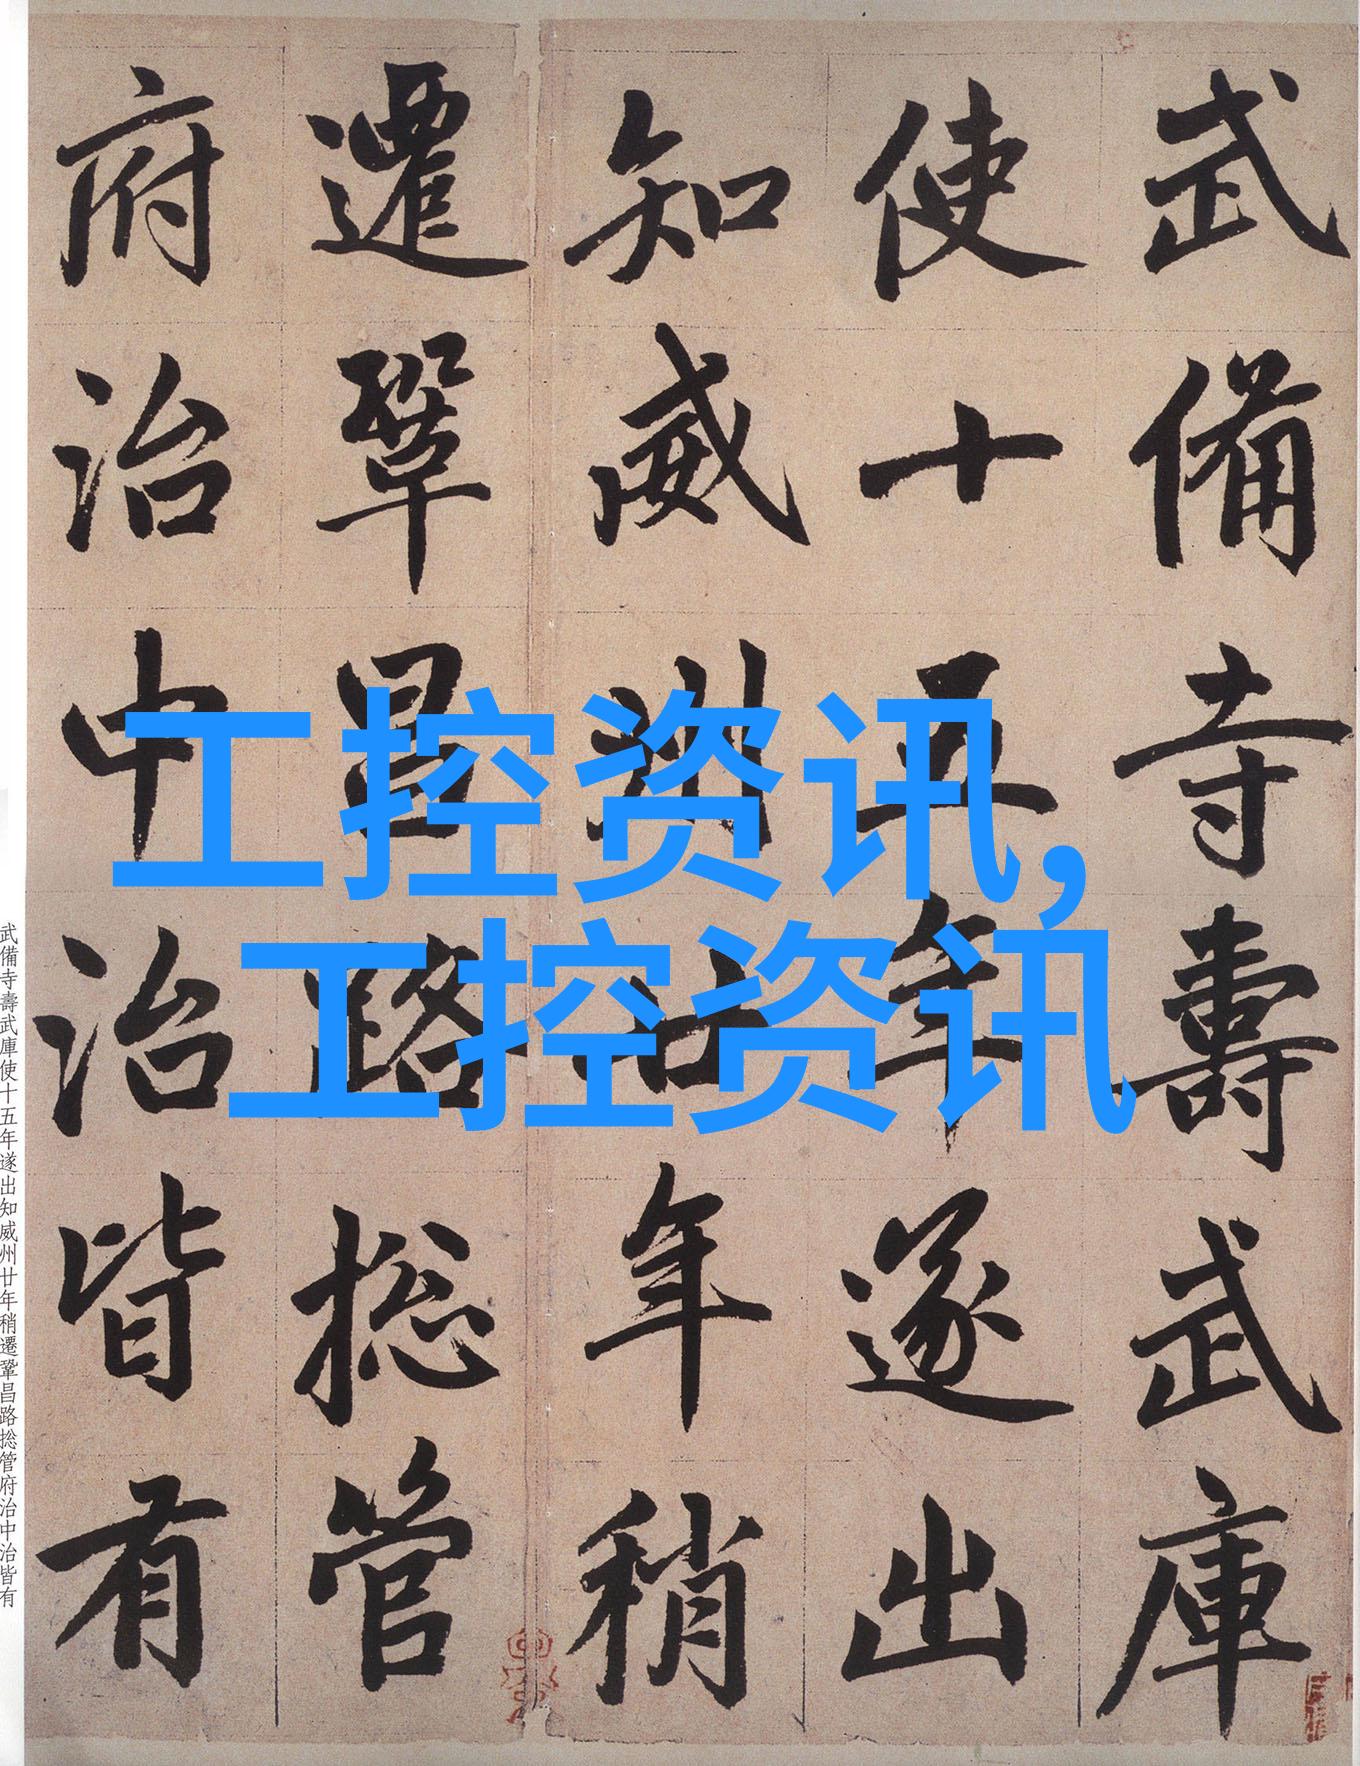 武備寺壽武庫
使十五年遂出
知威州廿年稍
遷鞏昌路捴管
府治中治皆有
工控资讯，
工控资讯
武備寺壽武庫使十五年遂出知威州廿年稍遷鞏昌路捴管府治中治皆有